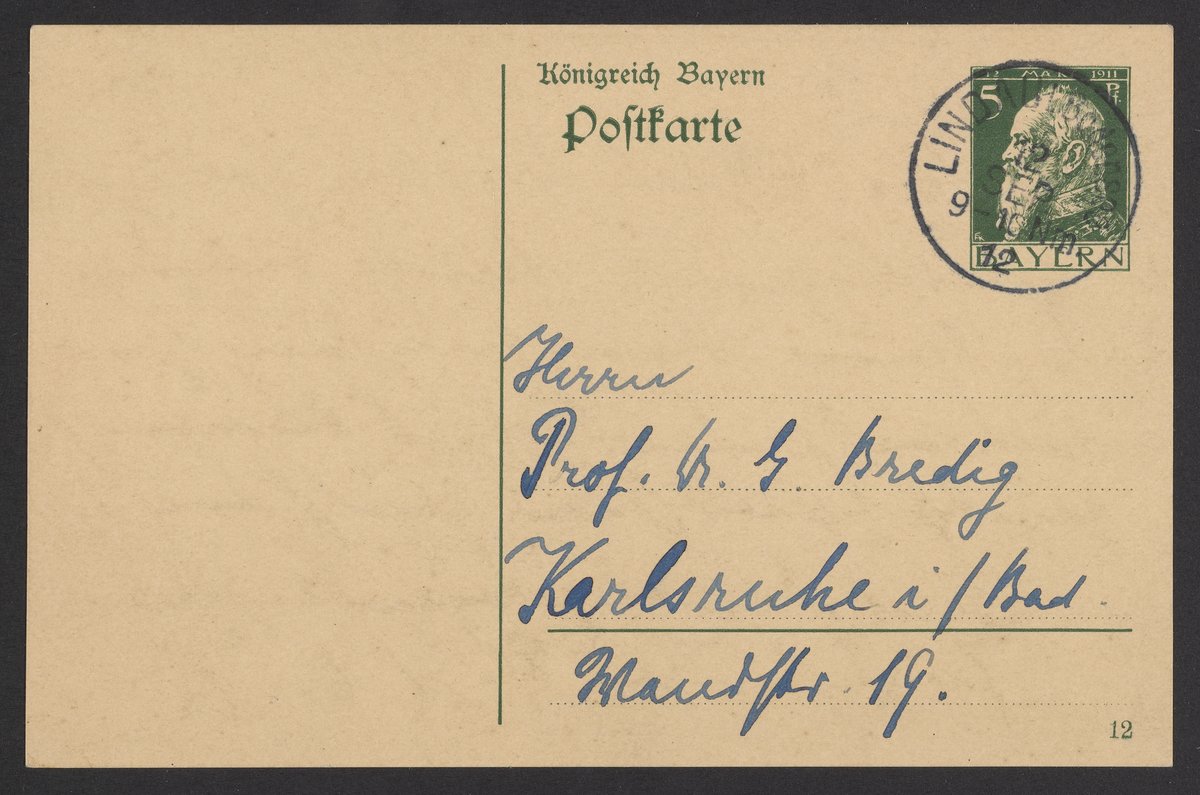 Königreich Bayern
Postkarte
12 MÄRZ 1911
5 Pf.
BAYERN
LINDAU
12
SEP
9-10 Nm.
12
Herrn
Prof. Dr. G. Bredig
Karlsruhe i/Bad.
19.
12